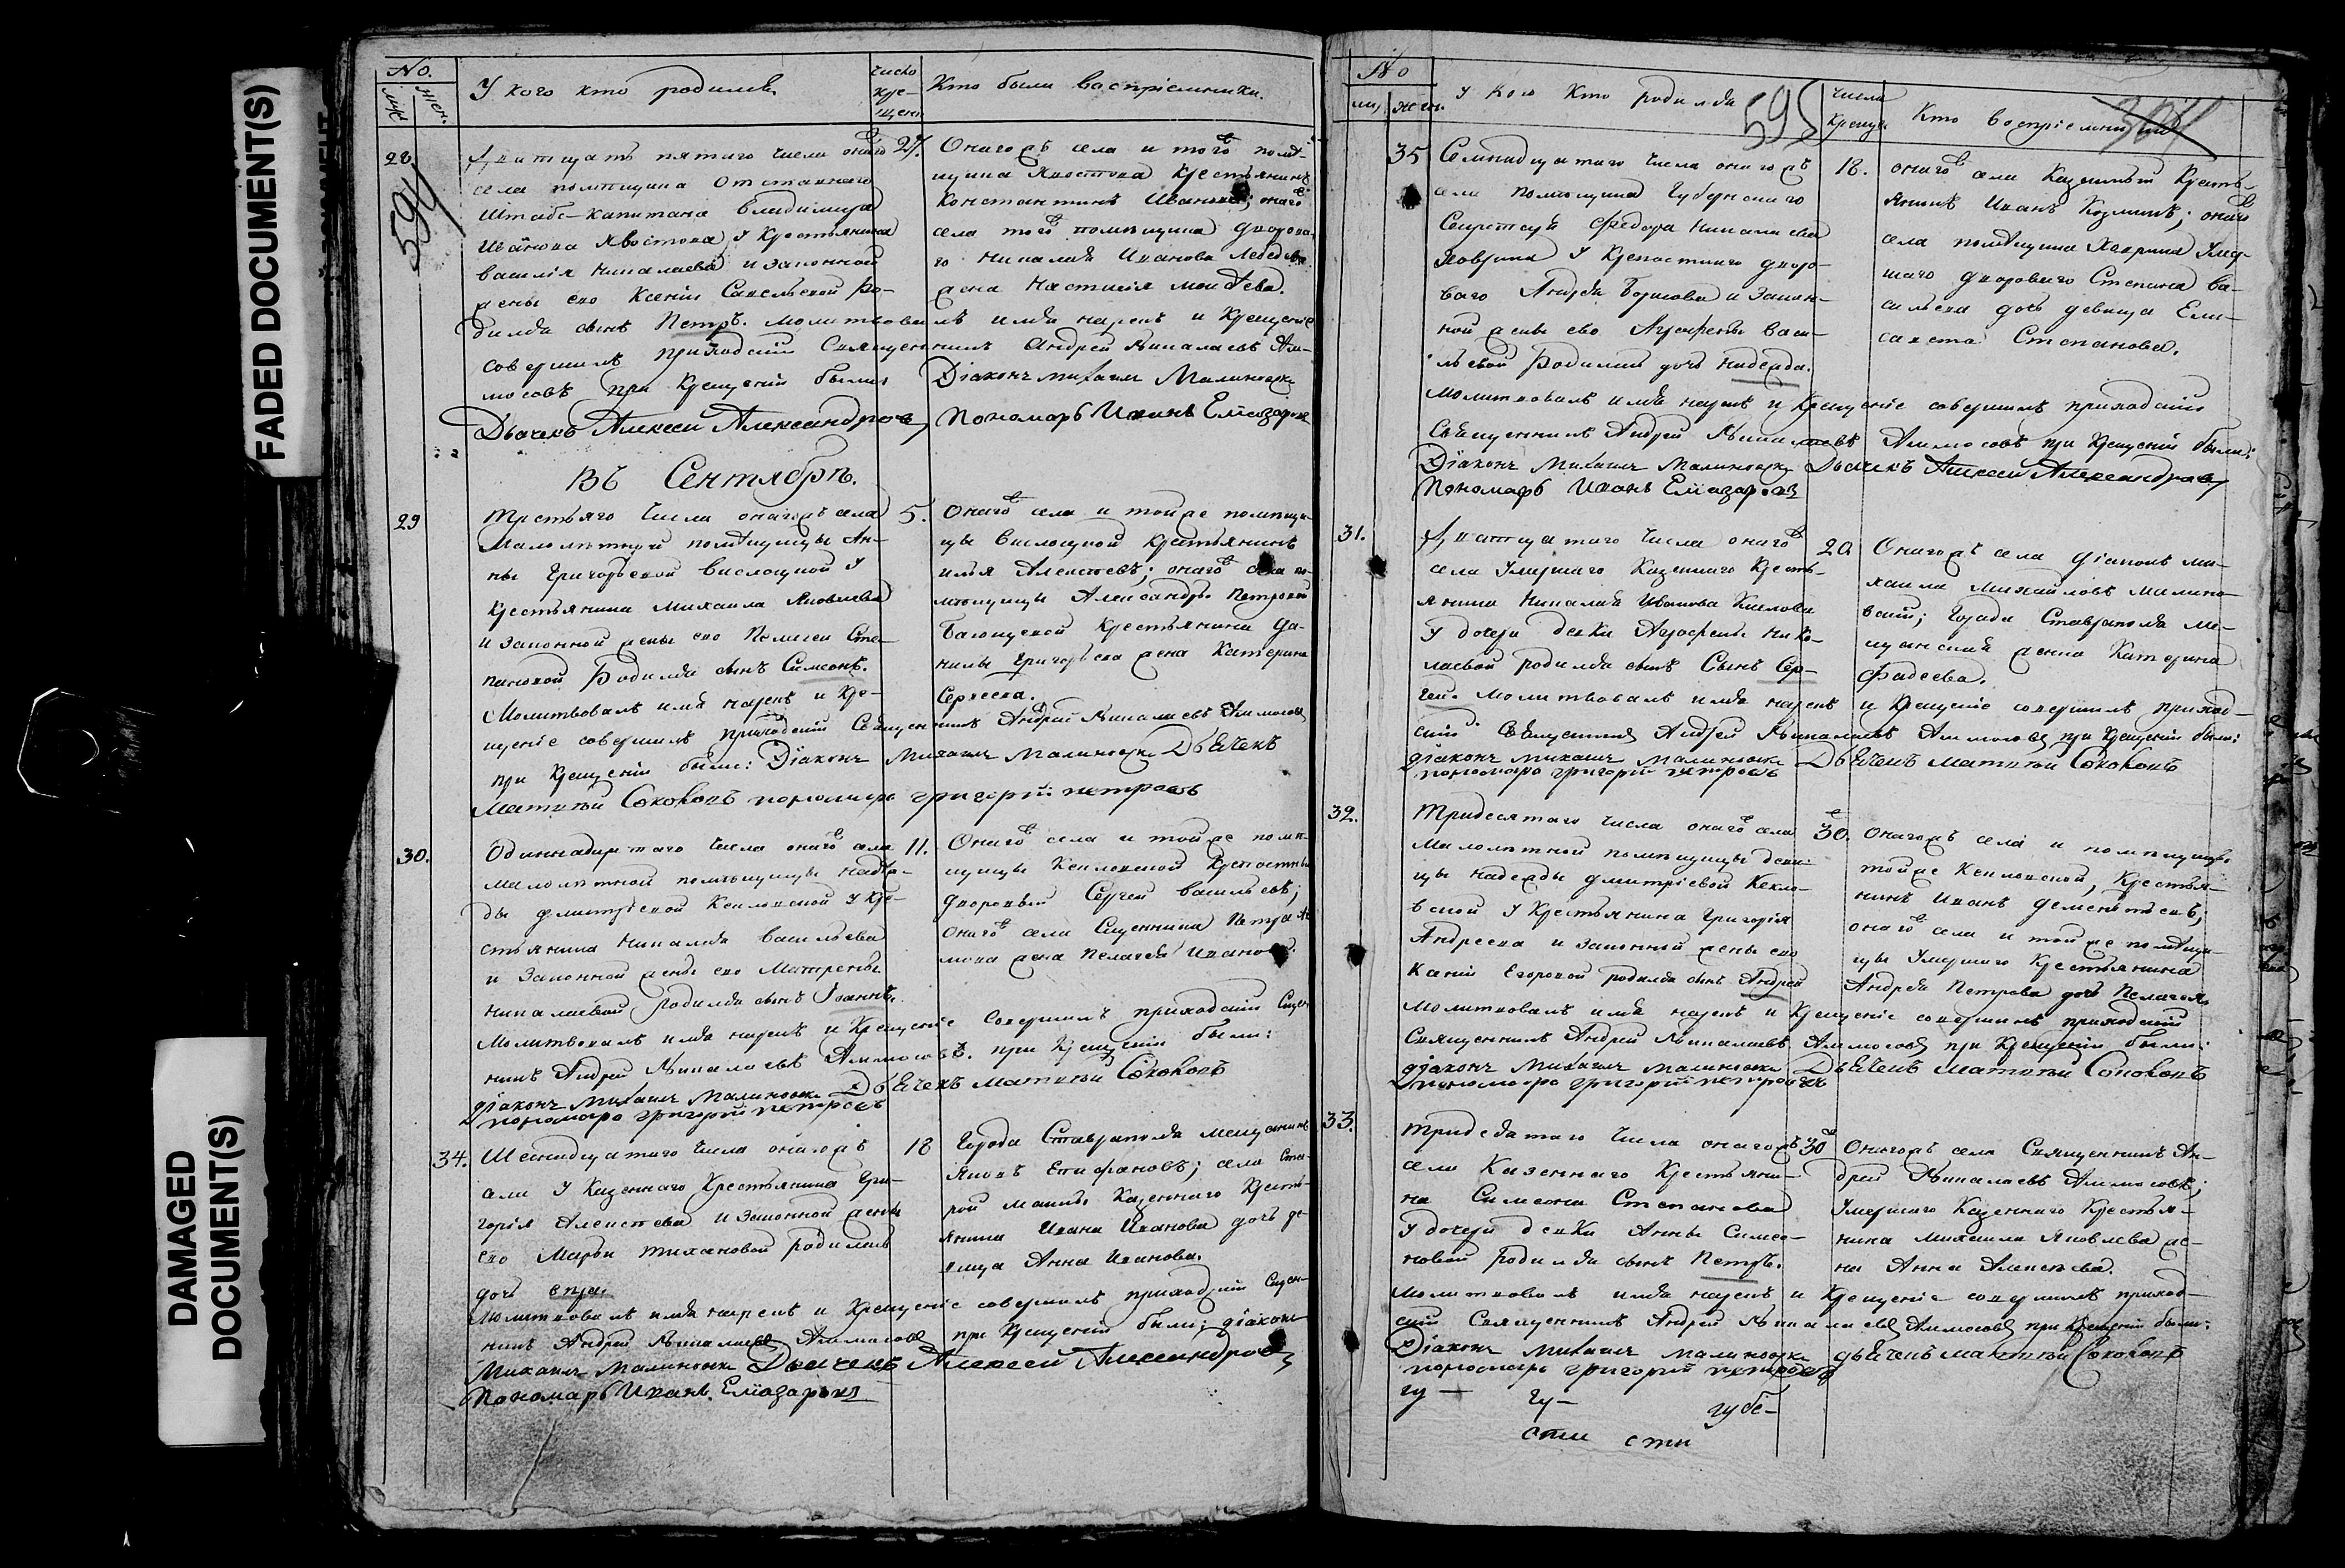 FADED DOCUMENT(S)
DAMAGED
DOCUMENT(S)
No.
муж
жен.
У кого кто родился
число
кре-
щенія
Кто были воспріемники.
28
594
Дватцать пятаго числа онагожъ
села помещика отставнаго
Штабс-капитана Владимира
Иванова Хвостова у Крестьянина
Василія Николаева и законной
жены ево Ксеніи Савельевой ро-
дился сынъ Петръ. молитвовалъ имя нарекъ и Крещеніе
совершилъ приходскій Священникъ Андрей Николаевъ Ам-
мосовъ при Крещеніи были
27.
Онагожъ села и тогожъ поме-
щика Хвостова Крестьянинъ
Константинъ Ивановъ; онаго
села тогожъ помещика дворова-
го Николая Иванова Лебедева
жена Настасія Моисѣева.
Діаконъ Михаилъ Малиновски
Дьячекъ Алексей Александровъ Пономарь Иванъ Елиазаровъ
Въ Сентябрѣ.
29
Третьяго числа онагожъ села
Малолѣтней помѣщицы Ан-
ны Григорьевой Вислоцкой у
Крестьянина Михаила Яковлева
и законной жены ево Пелагеи Сте-
пановой родился сынъ Симеонъ.
Молитвовалъ имя нарекъ и Кре-
щеніе совершилъ приходскій Священникъ Андрей Николаевъ Аммосовъ
при Крещеніи были: Діаконъ Михаилъ Малиновски Дьячекъ
Матвѣй Соколовъ пономарь григорій петровъ
5.
Онагожъ села и тойже помещи-
цы Вислоцкой Крестьянинъ
Илья Алексеевъ; онагожъ села по-
мѣщицы Александры Петровой
Крестьянина Да-
нилы Григорьева жена Катерина
Сергеева.
30.
Одиннадцатаго числа онагожъ села
малолѣтной помѣщицы Надѣж-
ды Дмитріевой Кекловской у Кре-
стьянина Николая Васильева
и Законной жены ево Матрены
Николаевой родился сынъ Іоаннъ.
Молитвовалъ имя нарекъ и Крещеніе Совершилъ приходскій Сщен-
никъ Андрей Николаевъ Аммосовъ. при Крещеніи были:
діаконъ Михаилъ Малиновски Дьячекъ Матвѣй Соколовъ
пономарь григорій петровъ
11.
Онагожъ села и тойже поме-
щицы Кекловской Крепостный
дворовый Сергей Васильевъ;
онагожъ села Сщенника Петра
жена Пелагея Иванова.
34.
Шеснадцатаго числа онагожъ
села у Казеннаго Крестьянина Гри-
горія Алексеева и законной жены
ево Марфы Тихановой родилась
дочь
Молитвовалъ имя нарекъ и Крещеніе совершилъ приходскій Сщен-
никъ Андрей Николаевъ Аммосовъ при Крещеніи были: діаконъ
Михаилъ Малиновски Дьячекъ Алексей Александровъ
Пономарь Иванъ Елиазаровъ
18
Города Ставраполя мещанинъ
Яковъ Епифановъ; села Ста-
рой Казеннаго Кресть-
янина Ивана Иванова дочь де-
вица Анна Иванова.
No
муж
жен.
У кого Кто родился
595
Числа
Крещен.
Кто воспріемники
304
35
Семнадцатаго числа онагожъ
села помещика Губернскаго
Секретаря Федора Николаева
Хаврина у Крепостнаго дворо-
ваго Андрея Борисова и Закон-
ной жены ево Агрофены Васи-
льевой Родилась дочь Надежда.
Молитвовалъ имя нарекъ и Крещеніе совершилъ приходскій
Священникъ Андрей Николаевъ Аммосовъ при Крещеніи были:
Діаконъ Михаилъ Малиновски Дьячекъ Алексей Александровъ
Пономарь Иванъ Елиазаровъ
18.
онагожъ села Казенный Кресть-
янинъ Иванъ Козминъ; онагожъ
села помѣщика Хаврина Умер-
шаго двороваго Степана Ва-
сильева дочь девица Ели-
савета Степанова.
31.
Дватцатаго числа онагожъ
села Умершаго Казеннаго Кресть-
янина Николая Иванова Кислова
У дочери девки Агрофены Нико-
лаевой родился сынъ Сынъ Сер-
гей. Молитвовалъ имя нарекъ и Крещеніе совершилъ приход-
скій Священникъ Андрей Николаевъ Аммосовъ при Крещеніи были:
діаконъ Михаилъ Малиновски Дьячекъ Матвѣй Соколовъ
пономарь григорій петровъ
20
Онагожъ села діаконъ Ми-
хаилъ Михайловъ Малино-
вскій; Города Ставраполя Ме-
щанская женка Катерина
Фадеева.
32.
Тридесятаго числа онагожъ села
Малолѣтной помѣщицы деви-
цы Надежды Дмитріевой Кекло-
вской У Крестьянина Григорія
Андреева и законной жены ево
Егоровой родился сынъ Андрей
Молитвовалъ имя нарекъ и Крещеніе совершилъ приходскій
Священникъ Андрей Николаевъ Аммосовъ при Крещеніи были:
діаконъ Михаилъ Малиновски Дьячекъ Матвѣй Соколовъ
пономарь григорій петровъ
30.
Онагожъ села и помещицы
тойже Кекловской, Крестья-
нинъ Иванъ Дементьевъ;
онагожъ села и тойже помѣщи-
цы Умершаго Крестьянина
Андрея Петрова дочь Пелагея
33.
Тридесятаго Числа онагожъ
села Казеннаго Крестьяни-
на Симеона Степанова
У дочери девки Анны Симео-
новой родился сынъ Петръ.
Молитвовалъ имя нарекъ и Крещеніе совершилъ приход-
скій Священникъ Андрей Николаевъ Аммосовъ при Крещеніи были:
Діаконъ Михаилъ Малиновски дьячекъ Матвѣй Соколовъ
пономарь григорій петровъ
30
Онагожъ села Священникъ Ан-
дрей Николаевъ Аммосовъ;
Умершаго Казеннаго Крестья-
нина Михаила Яковлева же-
на Анна Алексеева.
гу- гу- губе-
сти сти